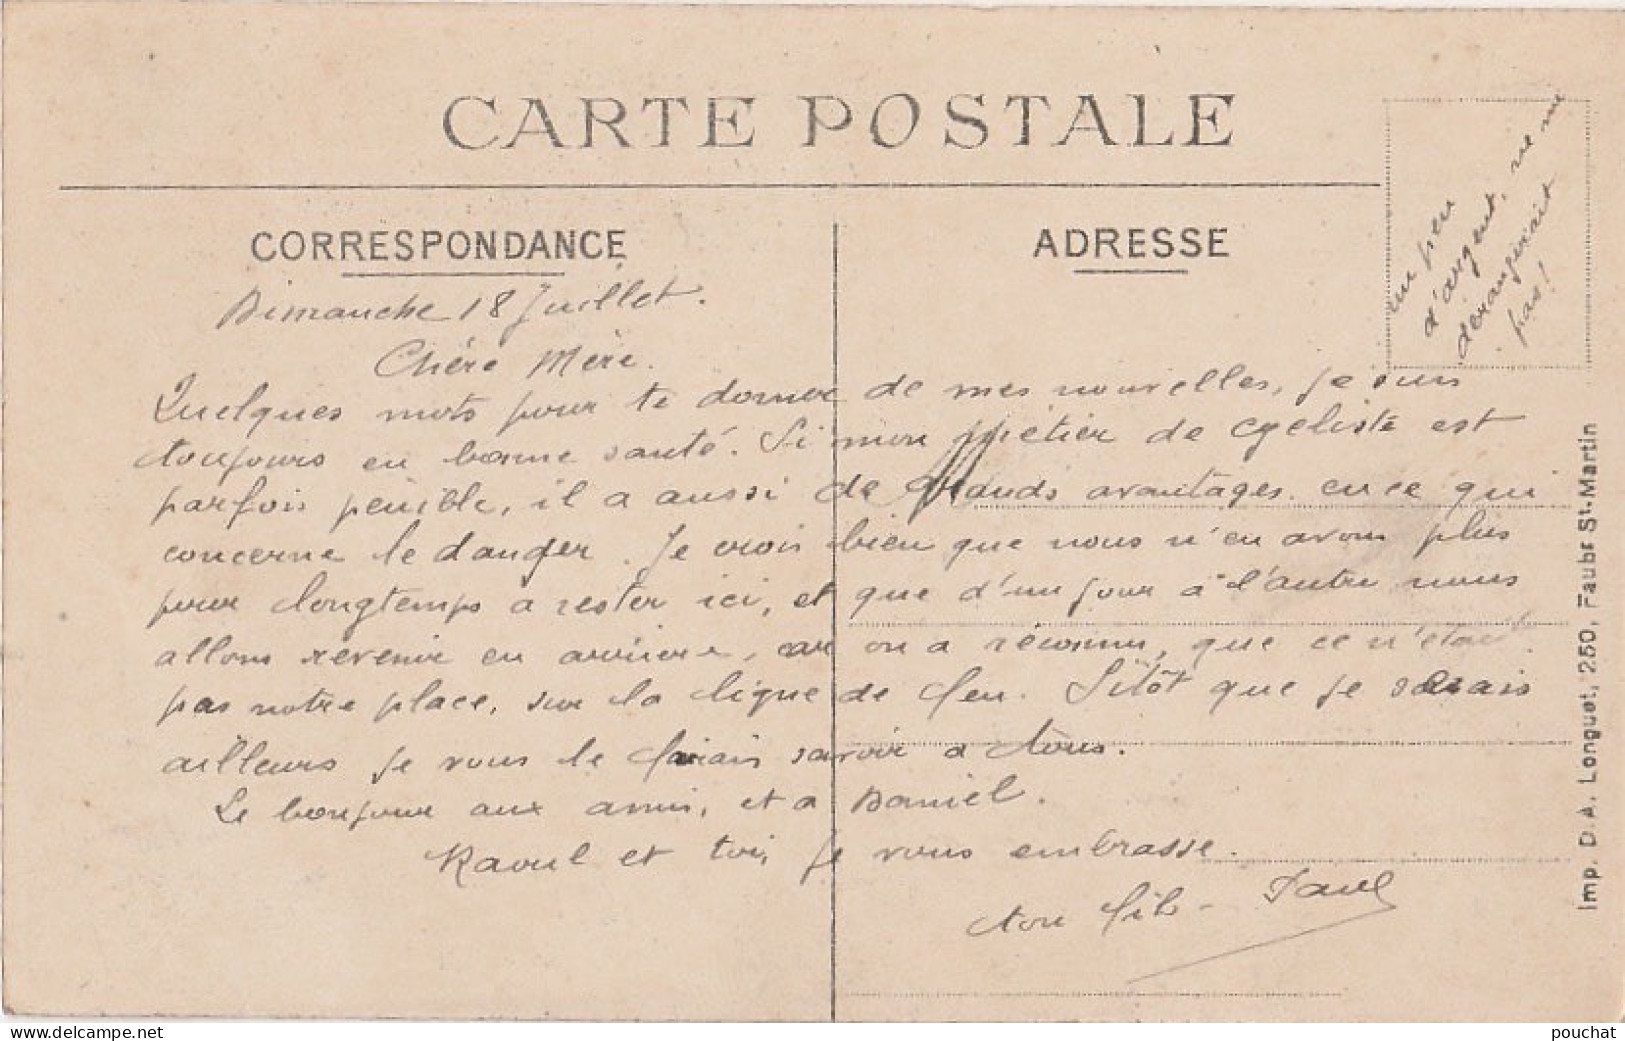 CARTE POSTALE
CORRESPONDANCE
ADRESSE
un peu
d'argent, ne me
dérangerait
pas!
Dimanche 18 Juillet.
Chère Mère.
Quelques mots pour te donner de mes nouvelles, je suis
toujours en bonne santé. Si mon métier de cycliste est
parfois pénible, il a aussi de grands avantages en ce qui
concerne le danger. Je crois bien que nous n'en avons plus
pour longtemps a rester ici, et que d'un jour à l'autre nous
allons revenir en arrière, car on a reconnu, que ce n'était
pas notre place, sur la ligne de feu. Sitôt que je serais
ailleurs je vous le ferais savoir a tous.
Le bonjour aux amis, et a Daniel.
Raoul et toi, je vous embrasse.
ton fils - Paul
Imp. D. A. Longuet, 250, Faubg St-Martin
www.delcampe.net
pouchat